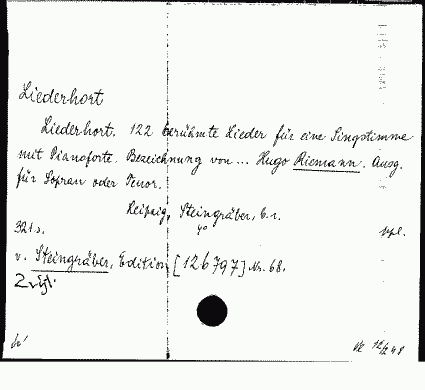 Liederhort
Liederhort. 122 berühmte Lieder für eine Singstimme
mit Pianoforte. Bezeichnung von ... Hugo Riemann. Ausg.
für Sopran oder Tenor.
Leipzig, Steingräber, b. r.
4°
321 s.
v. Steingräber, Edition [126797] Nr. 68.